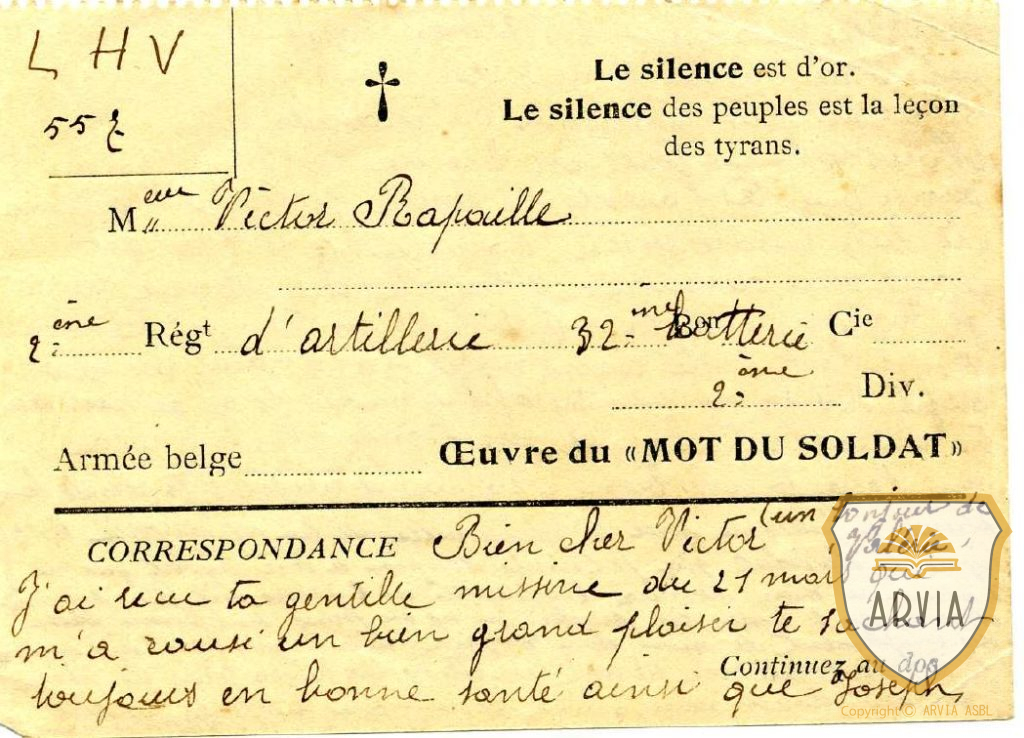 L H V
55
Le silence est d'or.
Le silence des peuples est la leçon
des tyrans.
M eur Victor Rapaille
2ème Régt d'artillerie 32me Bon batterie Cie
2ème Div.
Armée belge Œuvre du «MOT DU SOLDAT»
(un bonjour de
CORRESPONDANCE Bien cher Victor
J'ai recu ta gentille missive du 21 mars qui
m'a causé un bien grand plaisir te sachant
Continuez au dos
toujours en bonne santé ainsi que Joseph,
ARVIA
Copyright © ARVIA ASBL